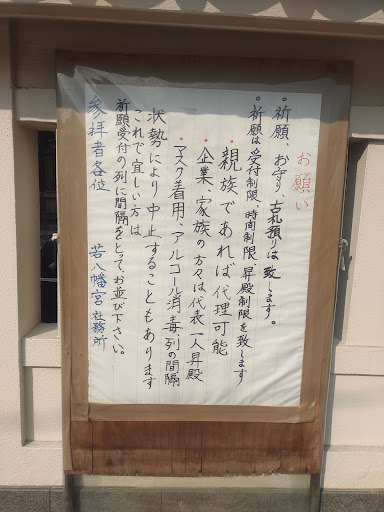 お願い
◦祈願、お守り、古札預りは致します。
◦祈願は受付制限、時尚制限、昇殿制限を致します
・親族であれば代理可能
・企業、家族の方々は代表一人昇殿
・マスク着用・アルコール消毒列の間隔
状勢により中止することもあります
これで宜しい方は
祈願受付の列に間隔をとって、お並び下さい。
参拝者各位 若八幡宮社務所